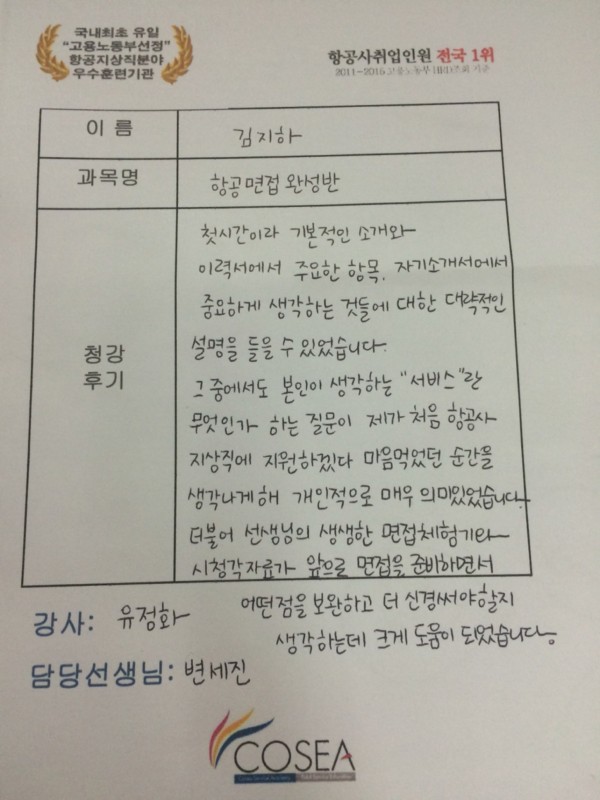 국내최초 유일
"고용노동부선정"
항공지상직분야
우수훈련기관
항공사취업인원 전국 1위
2011~2015 고용노동부 HRD조회 기준
이 름
김지하
과목명
항공면접 완성반
청강
후기
첫시간이라 기본적인 소개와
이력서에서 주요한 항목, 자기소개서에서
중요하게 생각하는 것들에 대한 대략적인
설명을 들을 수 있었습니다.
그 중에서도 본인이 생각하는 "서비스"란
무엇인가 하는 질문이 제가 처음 항공사
지상직에 지원하겠다 마음먹었던 순간을
생각나게해 개인적으로 매우 의미있었습니다.
더불어 선생님의 생생한 면접체험기와
시청각자료가 앞으로 면접을 준비하면서
어떤점을 보완하고 더 신경써야할지
생각하는데 크게 도움이 되었습니다.
강사: 유정화
담당선생님: 변세진
COSEA